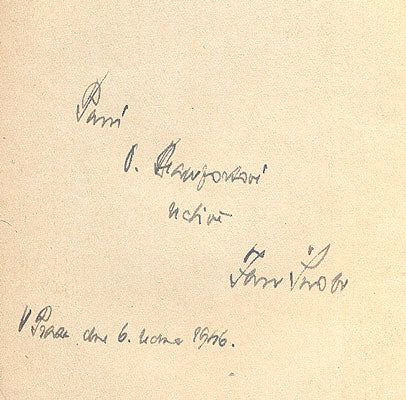 Paní
O.
uctivě
Jan
V Praze dne 6. ledna 1946.